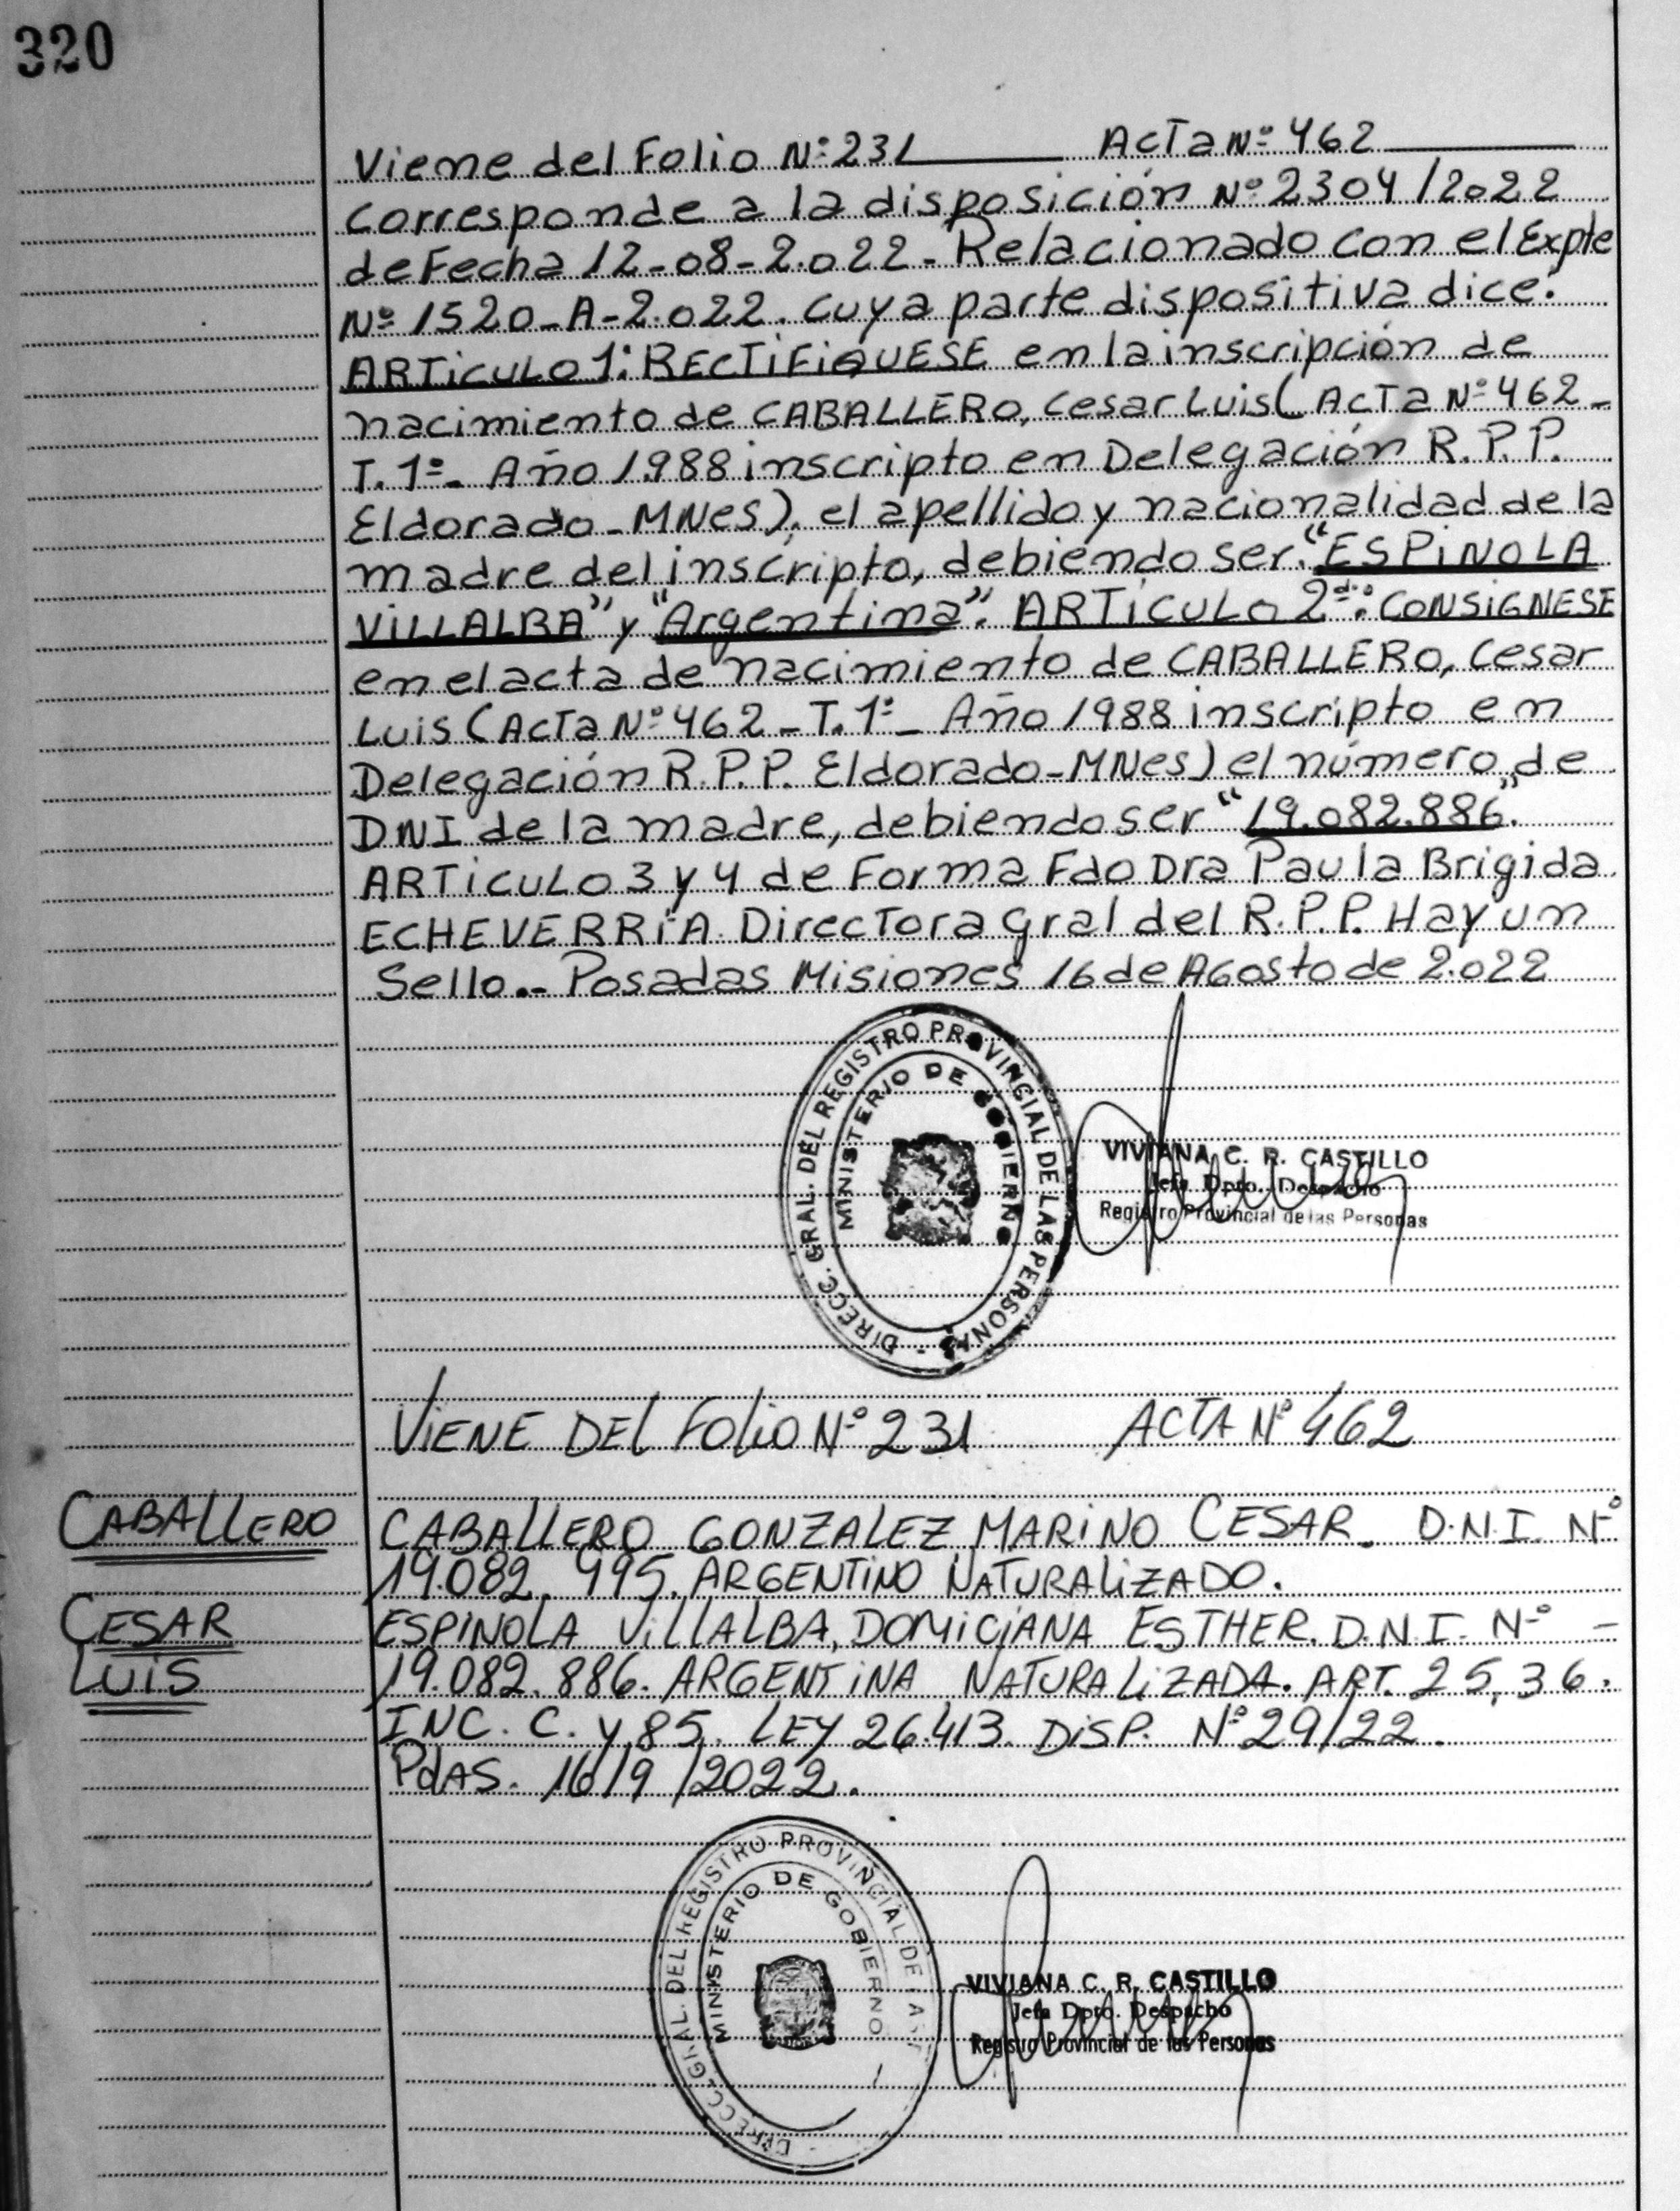 320
Viene del Folio Nº 231 ActaNº 462
Corresponde a la disposición Nº 2304/2022
de Fecha 12-08-2.022.- Relacionado con el Expte
Nº 1520-A-2.022. Cuya parte dispositiva dice:
ARTICULO 1: RECTIFIQUESE en la inscripción de
nacimiento de CABALLERO, Cesar Luis (Acta Nº 462-
T. 1º- Año 1.988 inscripto en Delegación R.P.P.
Eldorado-MNes), el apellido y nacionalidad de la
madre del inscripto, debiendo ser: "ESPINOLA
VILLALBA" y "Argentina". ARTÍCULO 2do: CONSIGNESE
en el acta de nacimiento de CABALLERO, Cesar
Luis (Acta Nº 462-T. 1º- Año 1988 inscripto en
Delegación R.P.P. Eldorado-MNes) el número de
DNI de la madre, debiendo ser "19.082.886".
ARTICULO 3 y 4 de Forma Fdo Dra Paula Brigida
ECHEVERRÍA. Directora gral del R.P.P. Hay un
Sello.- Posadas Misiones 16 de Agosto de 2.022
DIRECC. GRAL. DEL REGISTRO PROVINCIAL DE LAS PERSONAS
MINISTERIO DE GOBIERNO
VIVIANA C. R. CASTILLO
Jefa Dpto. Despacho
Registro Provincial de las Personas
VIENE DEL FOLIO Nº 231 ACTA Nº 462
CABALLERO
CESAR
LUIS
CABALLERO GONZALEZ MARINO CESAR. D.N.I. Nº
19.082.995. ARGENTINO NATURALIZADO.
ESPINOLA VILLALBA, DOMICIANA ESTHER. D.N.I. Nº -
19.082.886. ARGENTINA NATURALIZADA. ART. 25, 36.
INC. C. y 85. LEY 26.413. DISP. Nº 29/22.
PdAS. 16/9/2022.
DIRECC. GRAL. DEL REGISTRO PROVINCIAL DE LAS
MINISTERIO DE GOBIERNO
VIVIANA C. R. CASTILLO
Jefa Dpto. Despacho
Registro Provincial de las Personas